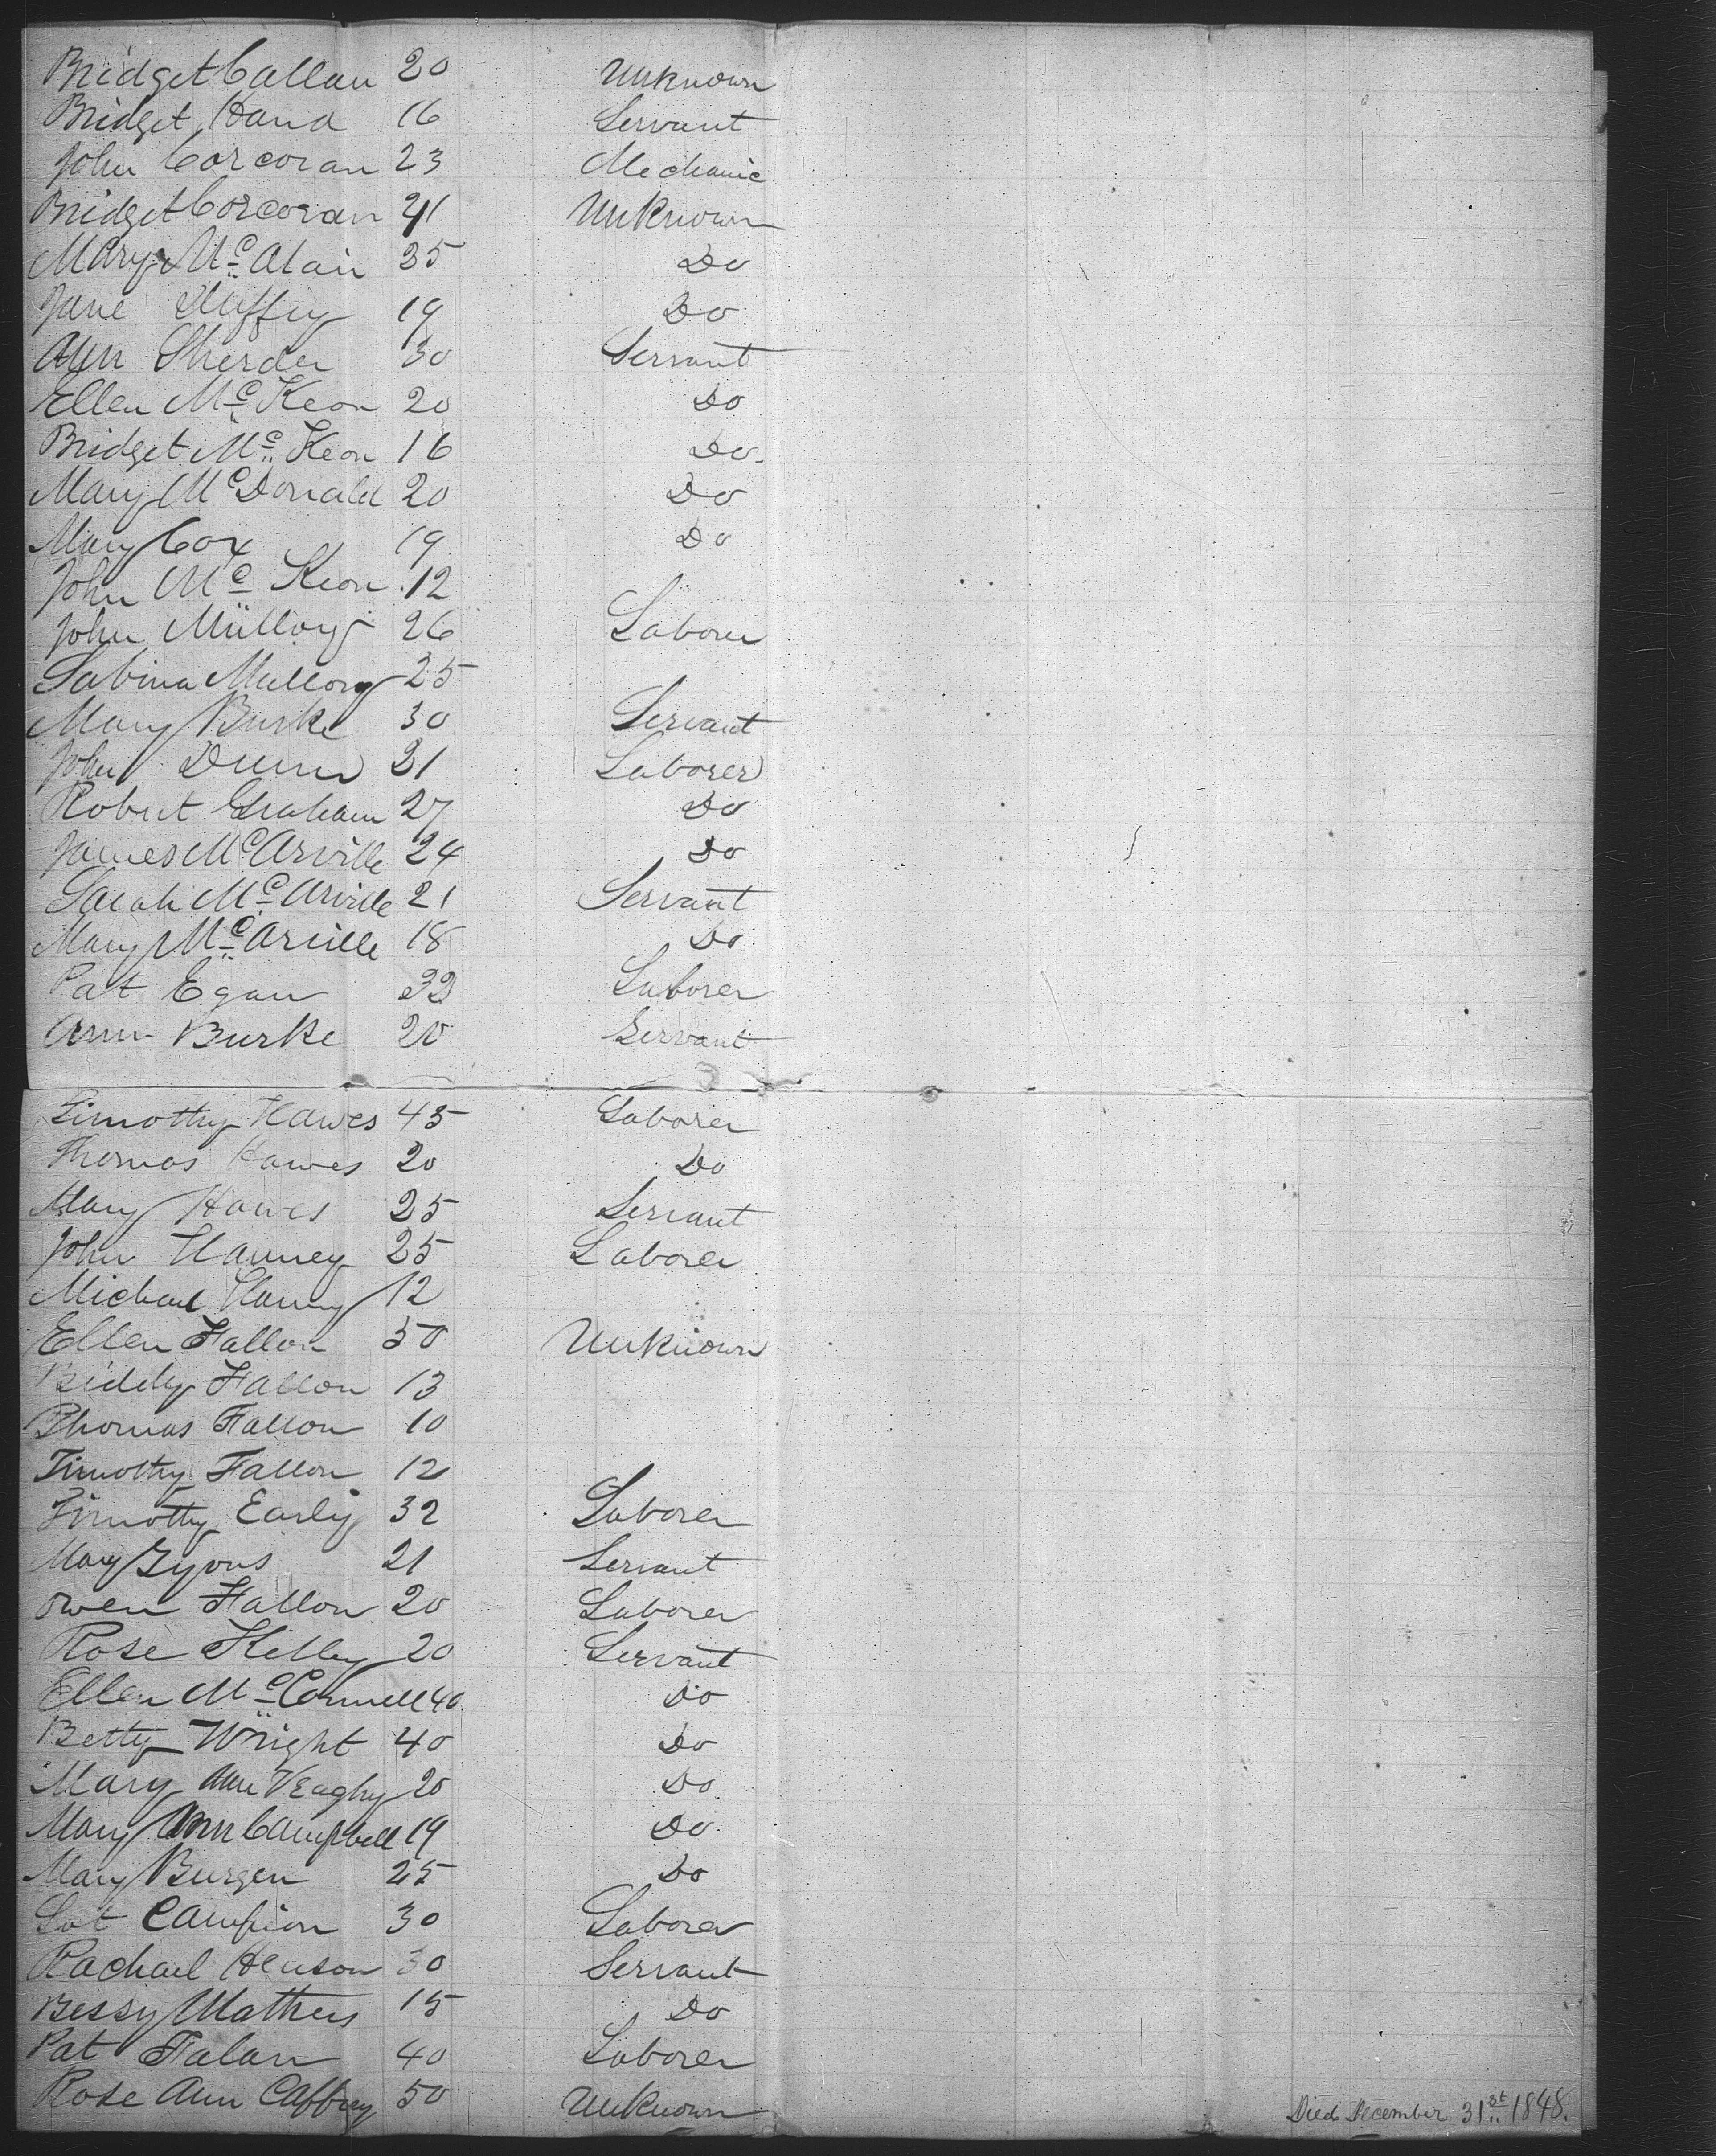 Bridget Callan 20 Unknown
Bridget Hand 16 Servant
John Corcoran 23 Mechanic
Bridget Corcoran 21 Unknown
Mary Mc Alair 35 Do
Jane Duffy 19 Do
Ann Sherden 30 Servant
Ellen Mc Keon 20 Do
Bridget Mc Keon 16 Do
Mary McDonald 20 Do
Mary Cox 19 Do
John Mc Keon 12
John Mulloy 26 Laborer
Sabina Mulloy 25
Mary Burke 30 Servant
John Dunn 21 Laborer
Robert Graham 27 Do
James McArville 24 Do
Sarah Mc Arville 21 Servant
Mary Mc Arville 18 Do
Pat Egan 32 Laborer
Ann Burke 20 Servant
Timothy Hawes 45 Laborer
Thomas Hawes 20 Do
Mary Hawes 25 Servant
John Hanney 25 Laborer
Michael Hanny 12
Ellen Fallon 50 Unknown
Biddy Fallon 13
Thomas Fallon 10
Timothy Fallon 12
Timothy Early 32 Laborer
Mary Lyons 21 Servant
Owen Fallon 20 Laborer
Rose Kelley 20 Servant
Ellen McConnell 40 Do
Betty Wright 40 Do
Mary Ann Veaghy 20 Do
Mary Ann Campbell 19 Do
Mary Burgen 25 Do
Lot Campion 30 Laborer
Rachael Henson 30 Servant
Bessy Mathews 15 Do
Pat Falan 40 Laborer
Rose Ann Caffrey 50 Unknown Died December 31st 1848.